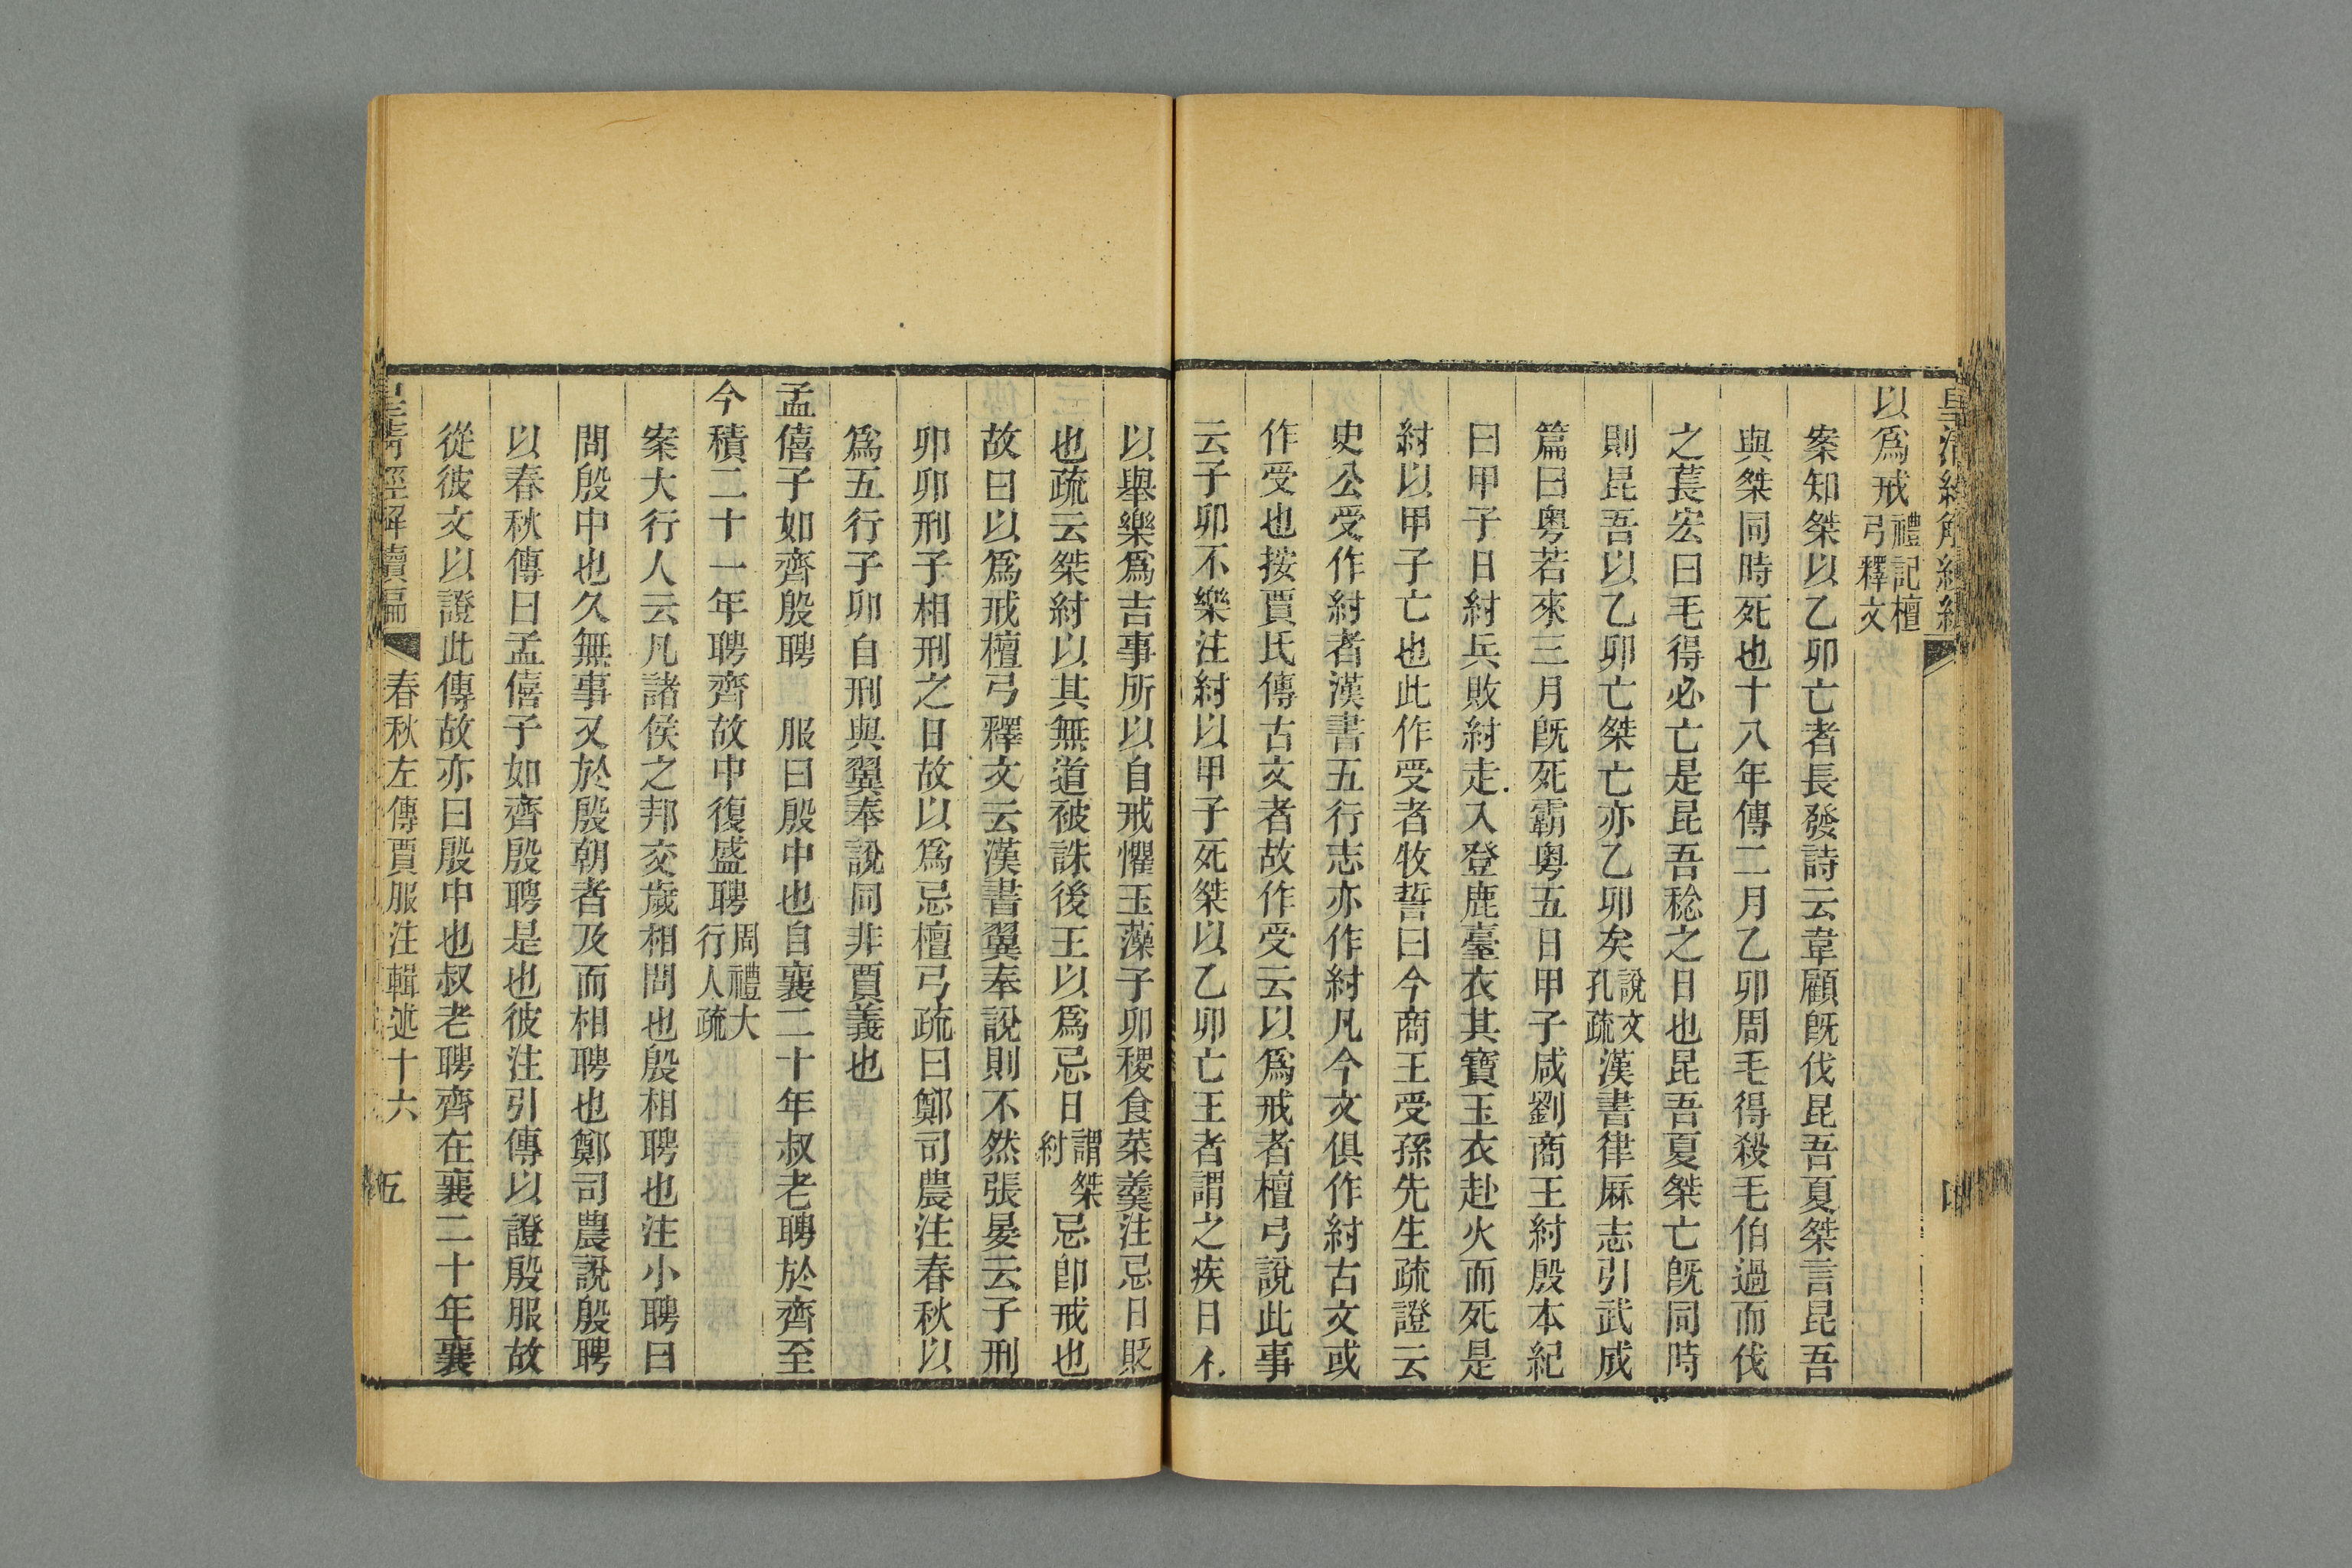 以爲戒禮記檀弓釋文
案知桀以乙卯亡者長發詩云韋顧旣伐昆吾夏桀言昆吾
與桀同時死也十八年傳二月乙卯周毛得殺毛伯過而伐
之萇宏曰毛得必亡是昆吾稔之日也昆吾夏桀亡旣同時
則昆吾以乙卯亡桀亡亦乙卯矣說文孔疏漢書律厤志引武成
篇曰粵若來三月旣死霸粵五日甲子咸劉商王紂殷本紀
曰甲子日紂兵敗紂走入登鹿臺衣其寶玉衣赴火而死是
紂以甲子亡也此作受者牧誓曰今商王受孫先生疏證云
史公受作紂者漢書五行志亦作紂凡今文俱作紂古文或
作受也按賈氏傳古文者故作受云以爲戒者檀弓說此事
云子卯不樂注紂以甲子死桀以乙卯亡王者謂之疾日不
以舉樂爲吉事所以自戒懼玉藻子卯稷食菜羹注忌日貶
也疏云桀紂以其無道被誅後王以爲忌日謂桀紂忌卽戒也
故曰以爲戒檀弓釋文云漢書翼奉說則不然張晏云子刑
卯卯刑子相刑之日故以爲忌檀弓疏曰鄭司農注春秋以
爲五行子卯自刑與翼奉說同非賈義也
孟僖子如齊殷聘 服曰殷中也自襄二十年叔老聘於齊至
今積二十一年聘齊故中復盛聘周禮大行人疏
案大行人云凡諸侯之邦交歲相問也殷相聘也注小聘曰
問殷中也久無事又於殷朝者及而相聘也鄭司農說殷聘
以春秋傳曰孟僖子如齊殷聘是也彼注引傳以證殷服故
從彼文以證此傳故亦曰殷中也叔老聘齊在襄二十年襄
皇淸經解續編 春秋左傳賈服注輯述十六 五